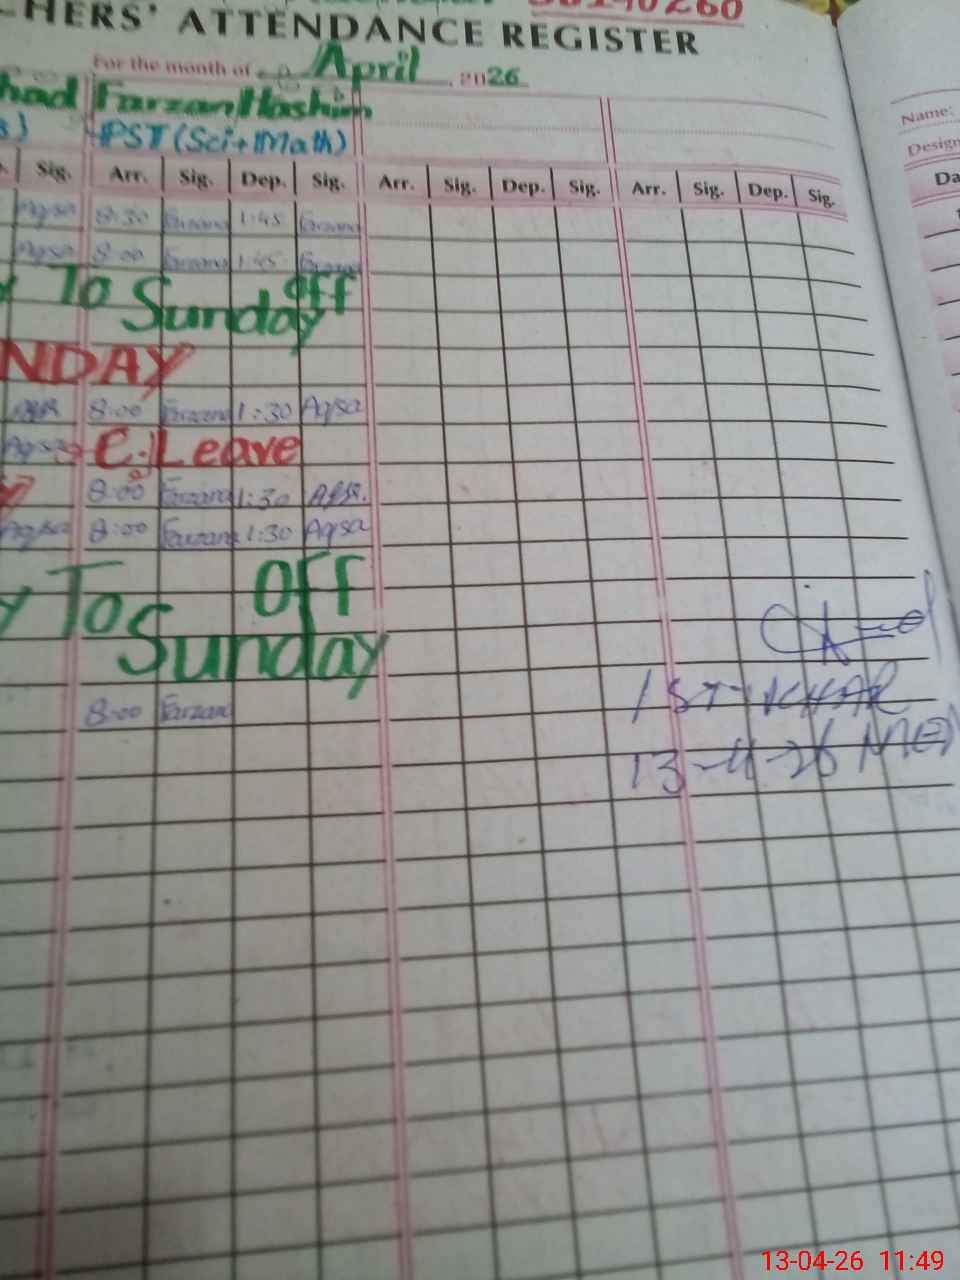 HERS' ATTENDANCE REGISTER
For the month of April 2026
had Farzana Hashim
PST (Sci+Math)
Name:
Design
Sig. Arr. Sig. Dep. Sig. Arr. Sig. Dep. Sig. Arr. Sig. Dep. Sig.
Da
Aqsa 8:30 Farzana 1:45 Farzana
Aqsa 8:00 Farzana 1:45 Farzana
To Sunday off
NDAY
8:00 Farzana 1:30 Aqsa
Aqsa C. Leave
8:00 Farzana 1:30
Aqsa 8:00 Farzana 1:30 Aqsa
y To Sunday OFF
8:00 Farzan
ISTIKHAR
13-4-26 MEA
13-04-26 11:49